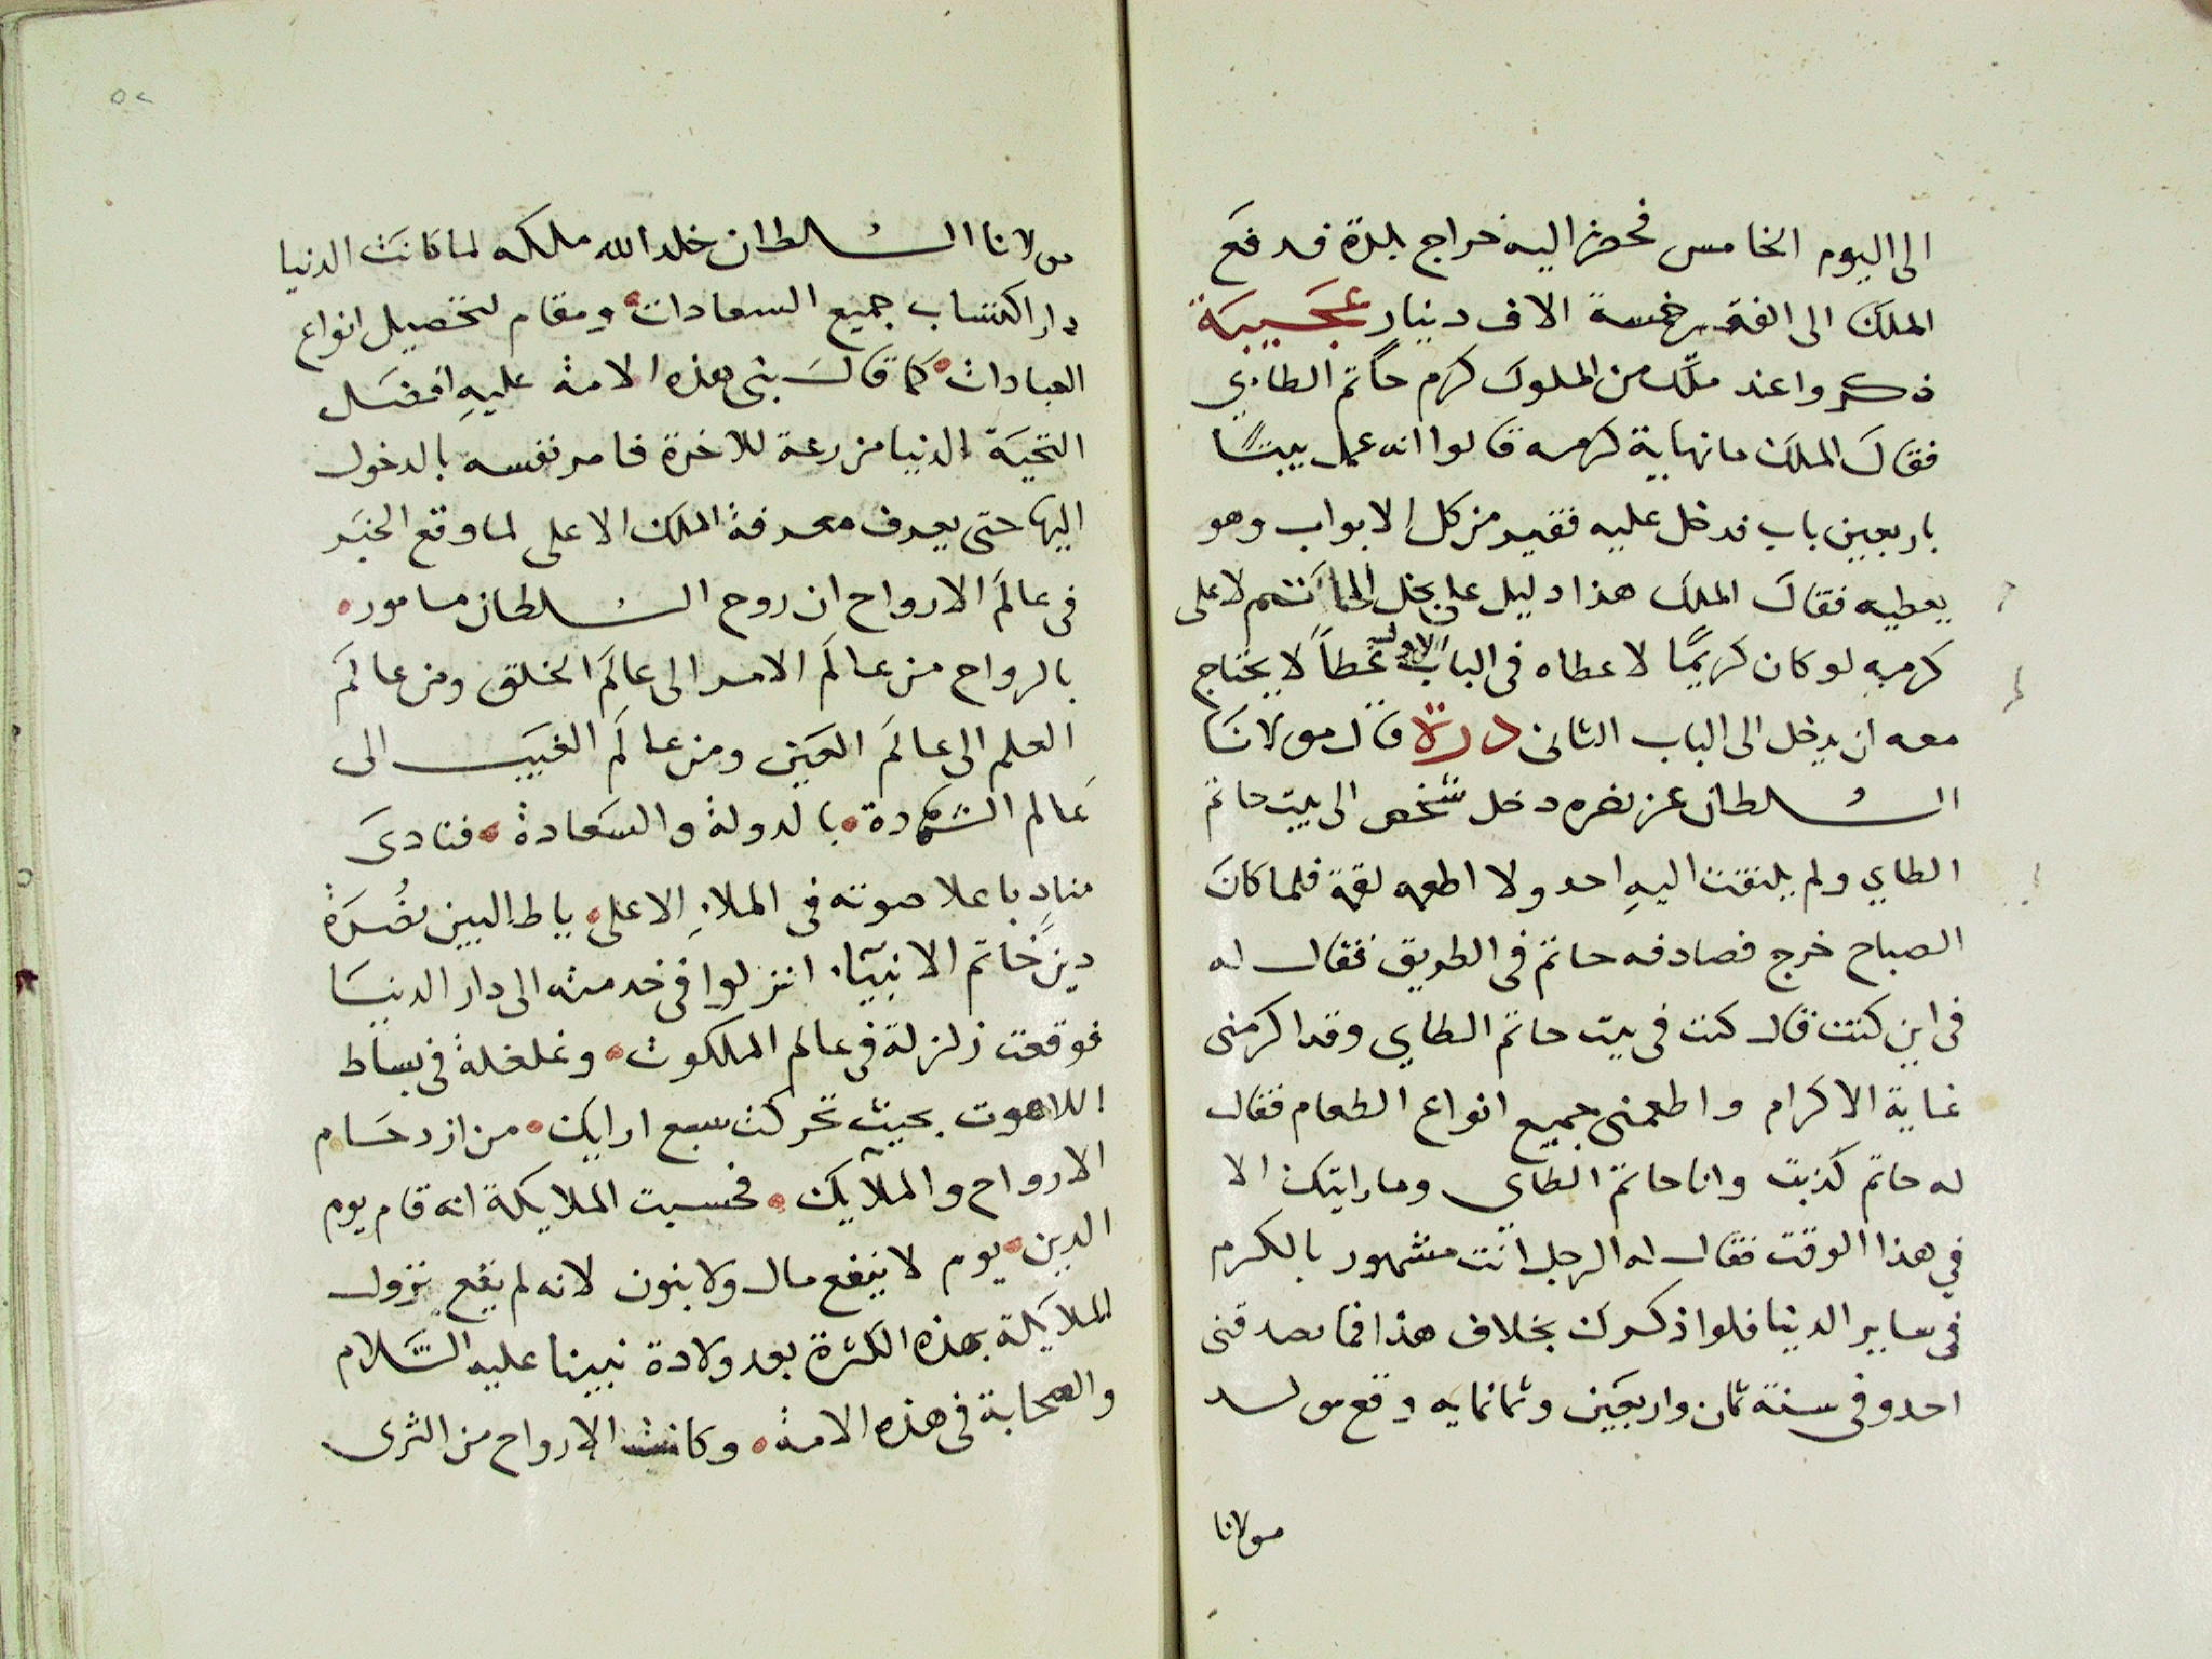 الى اليوم الخامس فحضر اليه خراج بلدة فدفع
الملك الى الفقير خمسة الاف دينار عجيبة
ذكروا عند ملك من الملوك كرم حاتم الطاءي
فقال الملك ما نهاية كرمه قالوا انه عمل بيتا
باربعين باب فدخل عليه فقير من كل الابواب وهو
يعطيه فقال الملك هذا دليل على بخل الحاتم لا على
كرمه لو كان كريما لاعطاه فى الباب الاول عطآ لا يحتاج
معه ان يدخل الى الباب الثانى درة قال مولانا
السلطان عز نصره دخل شخص الى بيت حاتم
الطاي ولم يلتفت اليه احد ولا اطعمه لقمة فلما كان
الصباح خرج فصادفه حاتم فى الطريق فقال له
فى اين كنت قال كنت فى بيت حاتم الطاي وقد اكرمنى
غاية الاكرام واطعمنى جميع انواع الطعام فقال
له حاتم كذبت وانا حاتم الطاى وما رايتك الا
في هذا الوقت فقال له الرجل انت مشهور بالكرم
فى ساير الدنيا فلو اذكرك بخلاف هذا فما يصدقنى
احد وفى سنة ثمان واربعين وثمانمايه وقع
مولانا
مولانا السلطان خلد الله ملكه لما كانت الدنيا
دار اكتساب جميع السعادات ومقام لتحصيل انواع
العبادات كما قال نبى هذه الامة عليه افضل
التحية الدنيا مزرعة للاخرة فامر نفسه بالدخول
اليها حتى يعرف معرفة الملك الاعلى لما وقع الخبر
فى عالم الارواح ان روح السلطان مامور
بالرواح من عالم الامر الى عالم الخلق ومن عالم
العلم الى عالم العين ومن عالم الغيب الى
عالم الشهادة بالدولة والسعادة فنادى
مناد باعلا صوته فى الملاء الاعلى ياطالبين نصرة
دين خاتم الانبيآء انزلوا فى خدمته الى دار الدنيا
فوقعت زلزلة فى عالم الملكوت وغلغلة فى بساط
اللاهوت بحيث تحركت سبع ارايك من ازدحام
الارواح والملايك فحسبت الملايكة انه قام يوم
الدين يوم لا ينفع مال ولا بنون لانه لم يقع نزول
الملايكة بهذه الكثرة بعد ولادة نبينا عليه السلام
والصحابة فى هذه الامة وكانت الارواح من الثرى